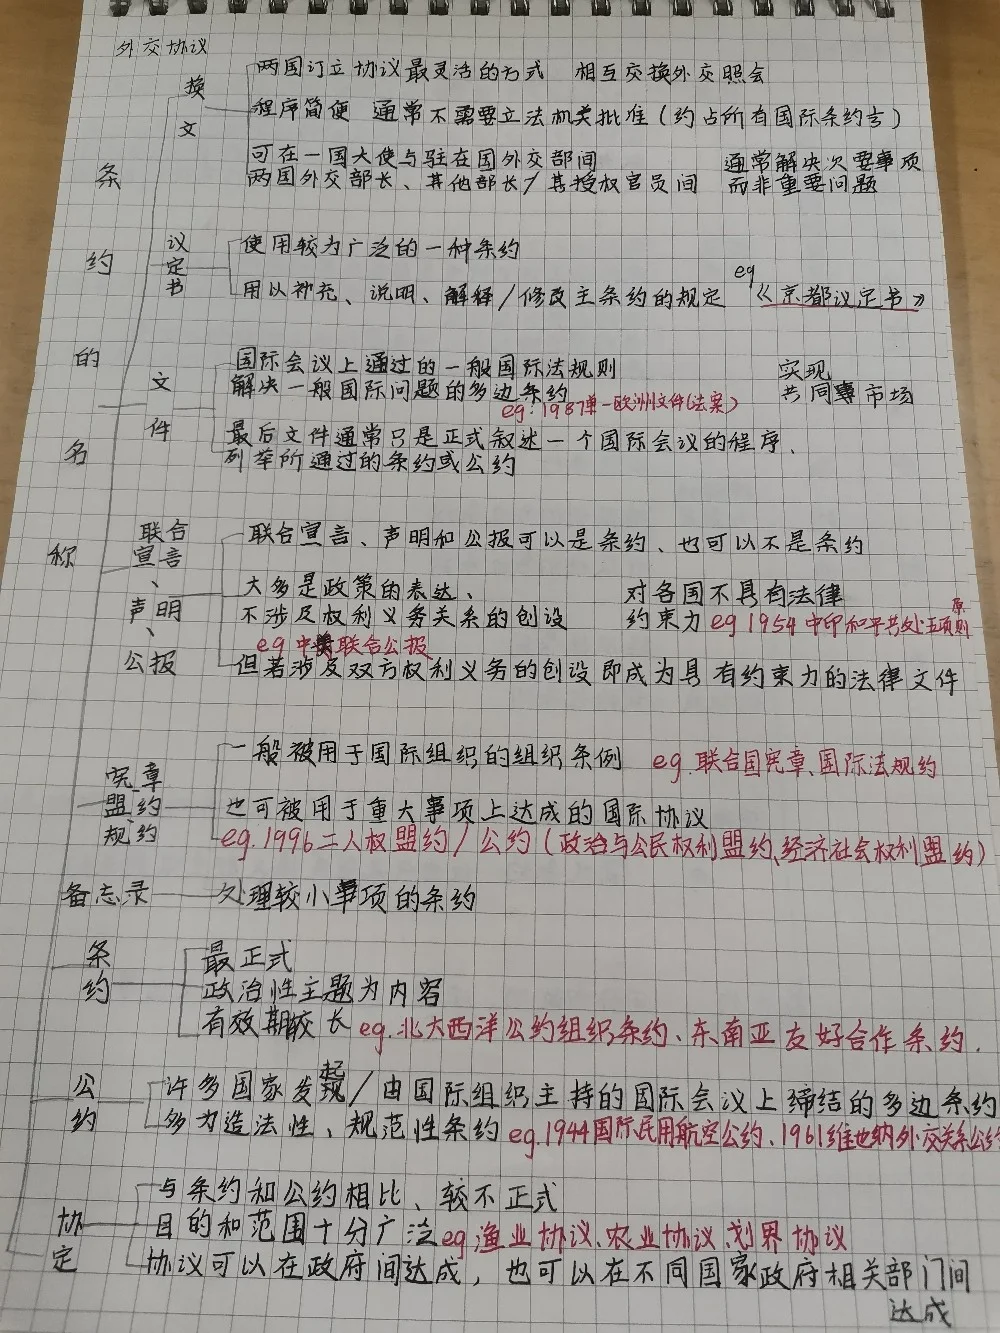 外交协议
换文
两国订立协议最灵活的方式 相互交换外交照会
程序简便 通常不需要立法机关批准(约占所有国际条约
可在一国大使与驻在国外交部间 通常解决次要事项
两国外交部长、其他部长/其授权官员间 而非重要问题
条约的名称
议定书
使用较为广泛的一种条约
用以补充、说明、解释/修改主条约的规定 eg《京都议定书》
文件
国际会议上通过的一般国际法规则 实现
解决一般国际问题的多边条约 共同市场
eg.1987单一欧洲文件(法案)
最后文件通常只是正式叙述一个国际会议的程序、
列举所通过的条约或公约
联合宣言、声明、公报
联合宣言、声明和公报可以是条约、也可以不是条约
大多是政策的表达、 对各国不具有法律
不涉及权利义务关系的创设 约束力 eg 1954中印和平共处五项原则
eg 中美联合公报
但若涉及双方权利义务的创设即成为具有约束力的法律文件
宪章、盟约、规约
一般被用于国际组织的组织条例 eg.联合国宪章、国际法规约
也可被用于重大事项上达成的国际协议
eg.1996二人权盟约/公约(政治与公民权利盟约、经济社会权利盟约)
备忘录 处理较小事项的条约
条约
最正式
政治性主题为内容
有效期较长 eg.北大西洋公约组织条约、东南亚友好合作条约.
公约
许多国家发起/由国际组织主持的国际会议上缔结的多边条约
多为造法性、规范性条约 eg.1944国际民用航空公约、1961维也纳外交关系公约
协定
与条约和公约相比、较不正式
目的和范围十分广泛 eg 渔业协议、农业协议、划界协议
协议可以在政府间达成,也可以在不同国家政府相关部门间
达成